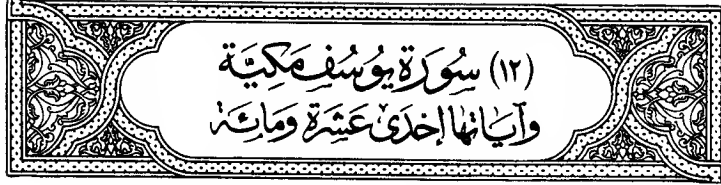 (١٢) سُورَة يُوسُفَ مَكِيَّة
وَآيَاتهَا إِحْدَىٰ عَشَرَة وَمِائَة